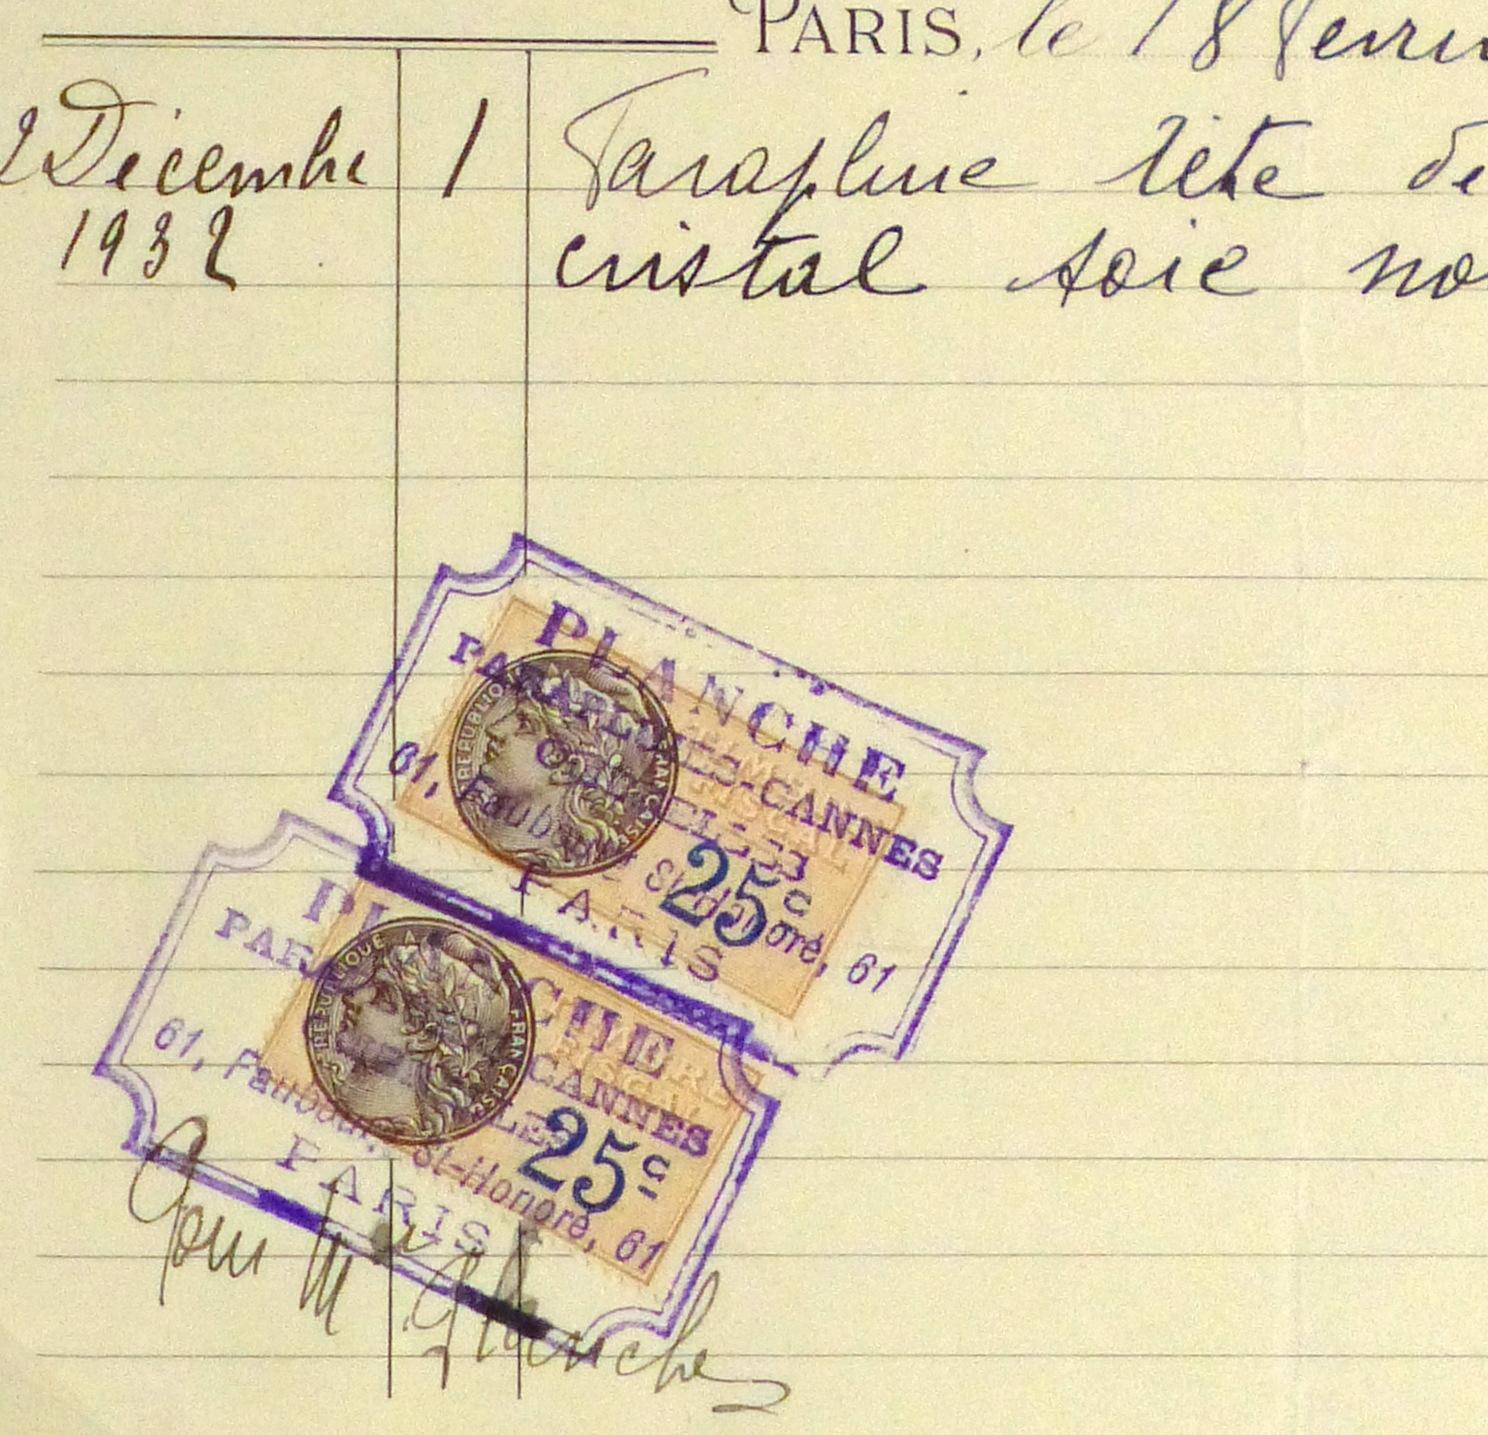 PARIS, le 18 Fevri
2 Décembre 1 Parapluie tête de
1932 cristal soie no
PLANCHE
PARAPLUIES-CANNES
OMBRELLES
61, Faubourg St-Honoré, 61
PARIS
RÉPUBLIQUE FRANÇAISE
TIMBRE
FISCAL
25c
PLANCHE
PARAPLUIES-CANNES
OMBRELLES
61, Faubourg St-Honoré, 61
PARIS
RÉPUBLIQUE FRANÇAISE
TIMBRE
FISCAL
25c
Pour Mr Planche